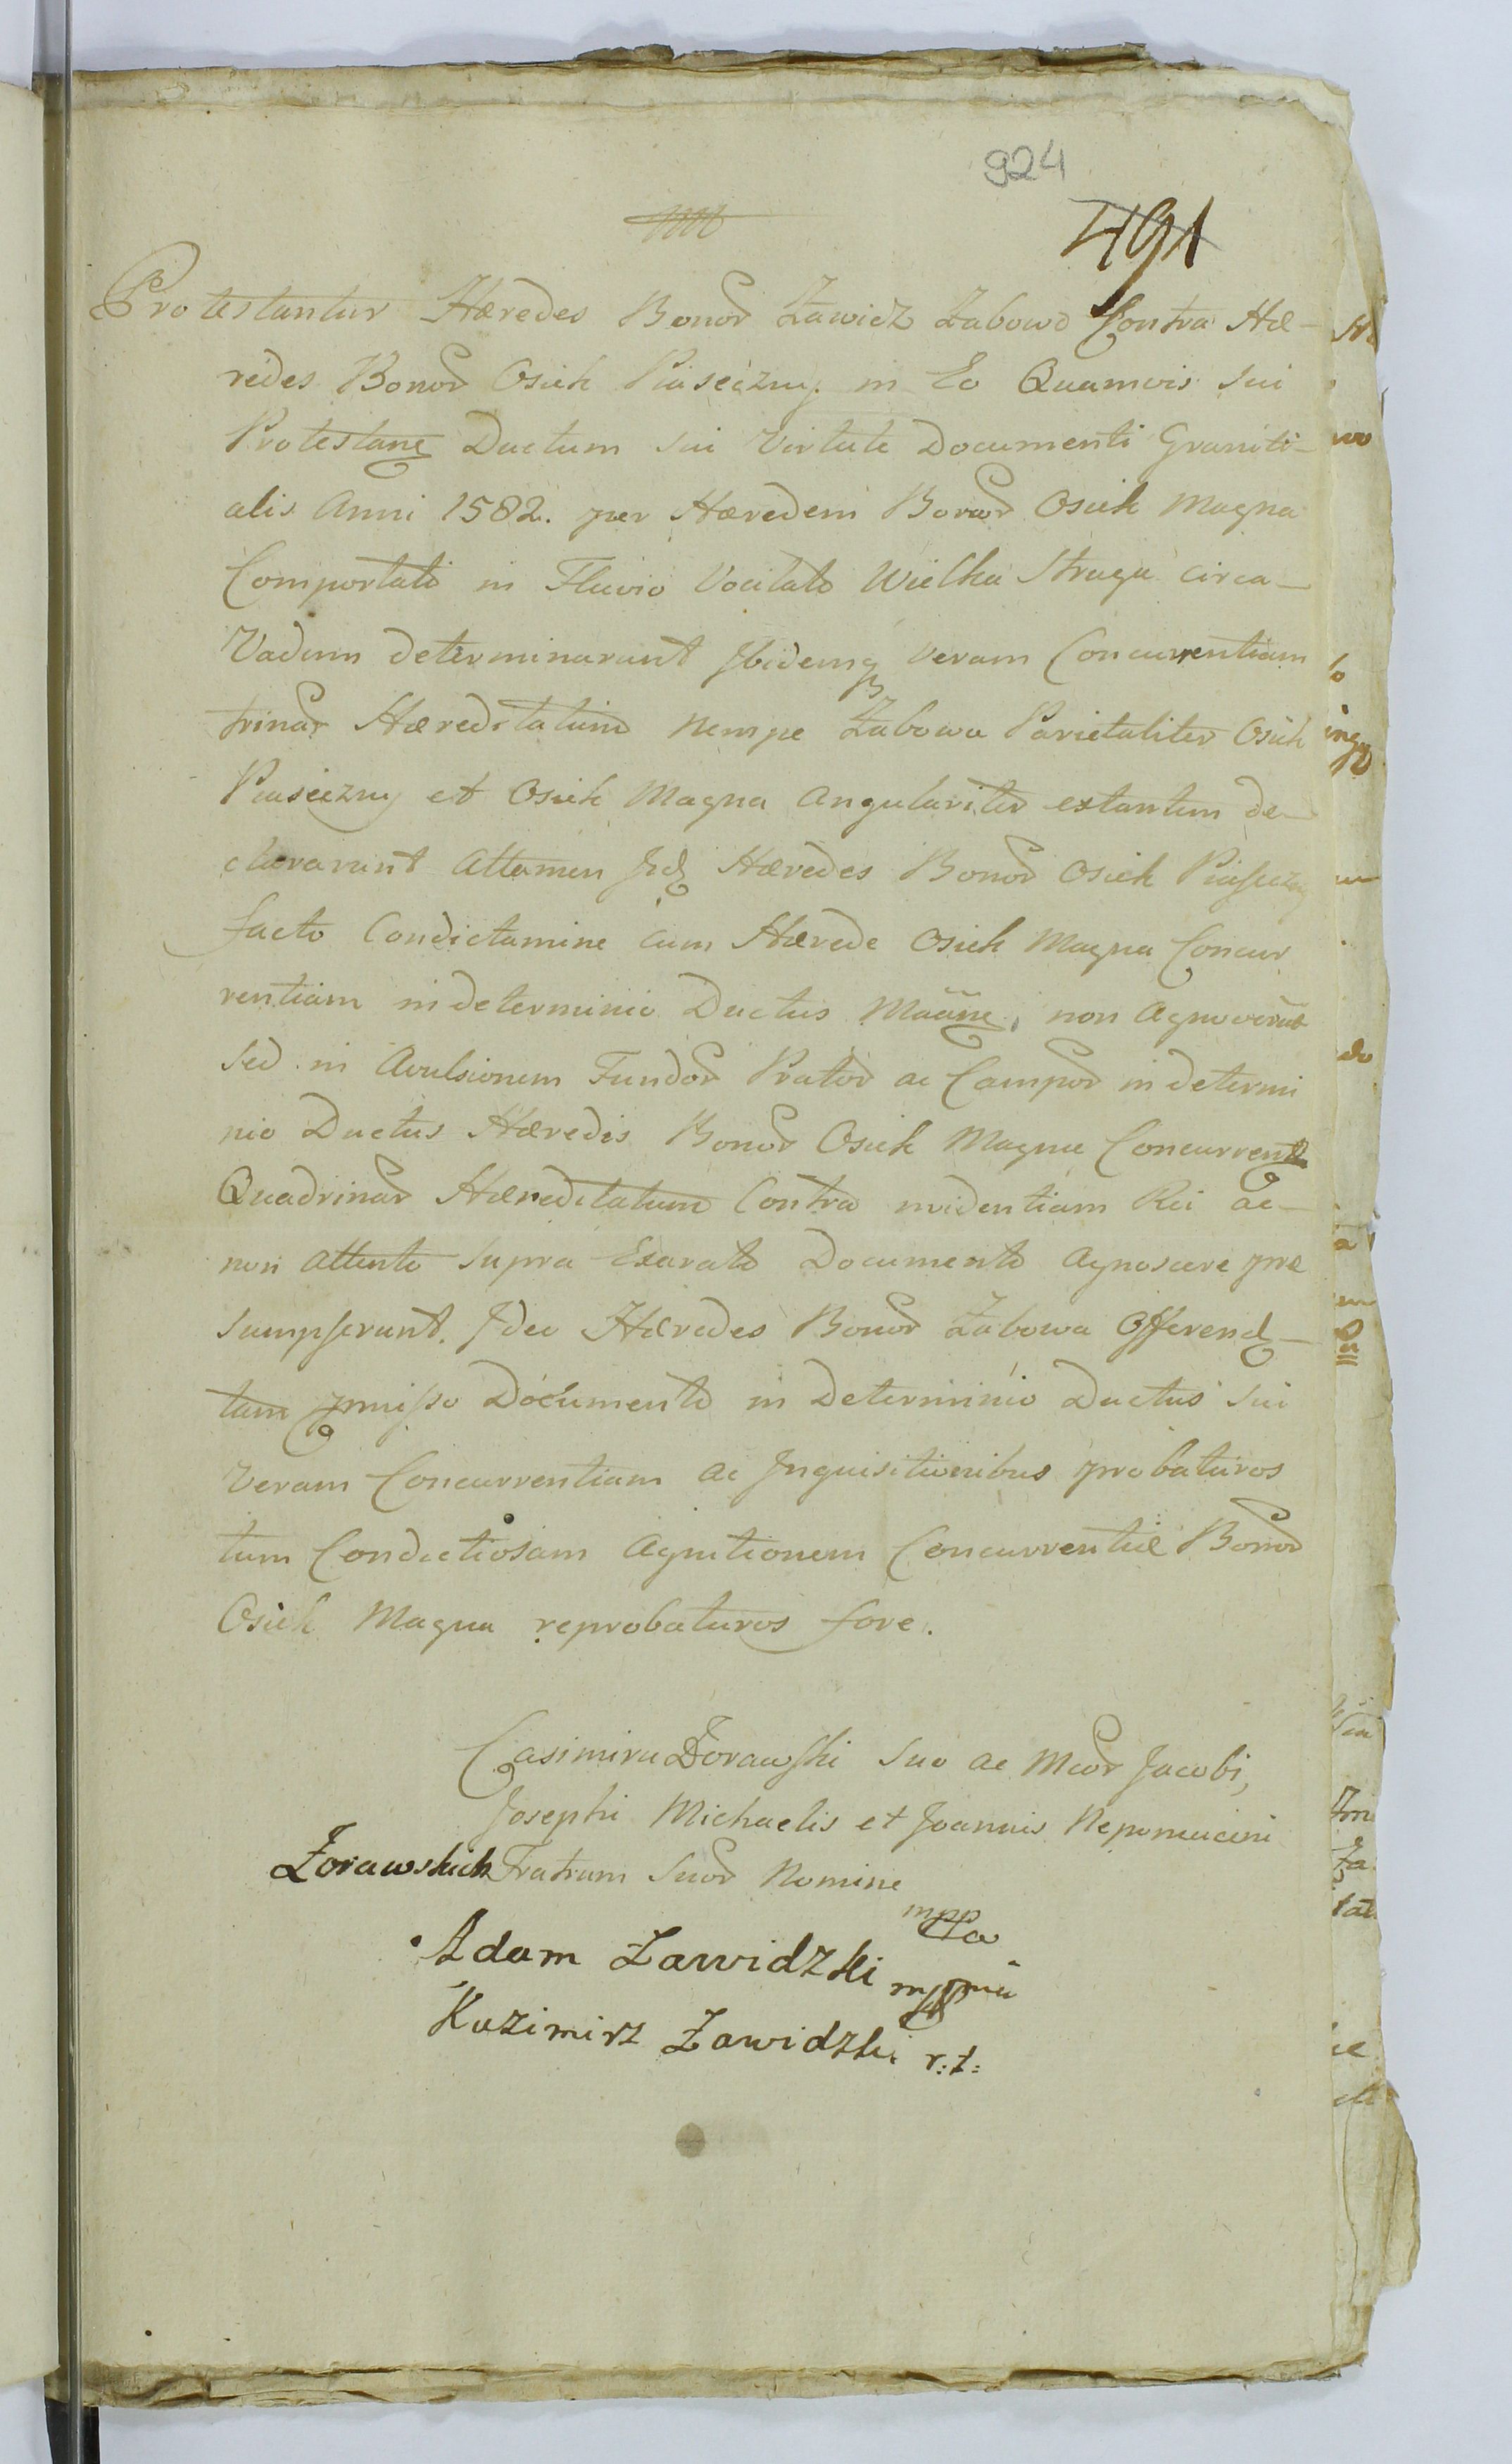 924
491
Protestantur Hæredes Bonor Zawidz Żabowo Contra Hæ-
redes Bonor Osiek Piaseczny. in Eo Quamvis sui
Protestane Ductum sui Virtute Documenti Graniti-
alis Anni 1582. per Hæredem Bonor Osiek Magna
Comportati in Fluvio Vocitato Wielka Struga circa-
Vadum determinarunt Ibidemq veram Concurrentiam
trinar Hæreditatum nempe Żabowa Parietaliter Osiek
Piaseczny et Osiek Magna Angulariter extantem de-
clararunt Attamen Hæredes Bonor Osiek Piaseczny
facto Condictamine cum Hærede Osiek Magna Concur
rentiam in determinio Ductus non Agnoverunt
sed in Avulsionem Fundor Prator ac Campor in determi
nio Ductus Hæredis Bonor Osiek Magna Concurrent
Quadrinar Hæreditatum Contra evidentiam Rei ac-
non attento supra Exarato Documento Agnoscere præ
sumpserunt. Ideo Hæredes Bonor Żabowa Offerend-
tam pmisso Documento in Determinio Ductus sui
Veram Concurrentiam ac Inquisitionibus probaturos
tum Condictiosam Agnitionem Concurrentiæ Bonor
Osiek Magna reprobaturos fore.
Casimiru Zorawski suo ac Meor Jacobi,
Josephi Michaelis et Joannis Nepomuceni
Zorawskich Fratrum Suor Nomine
mpp
Adam Zawidzki mppria
Kazimirz Zawidzki